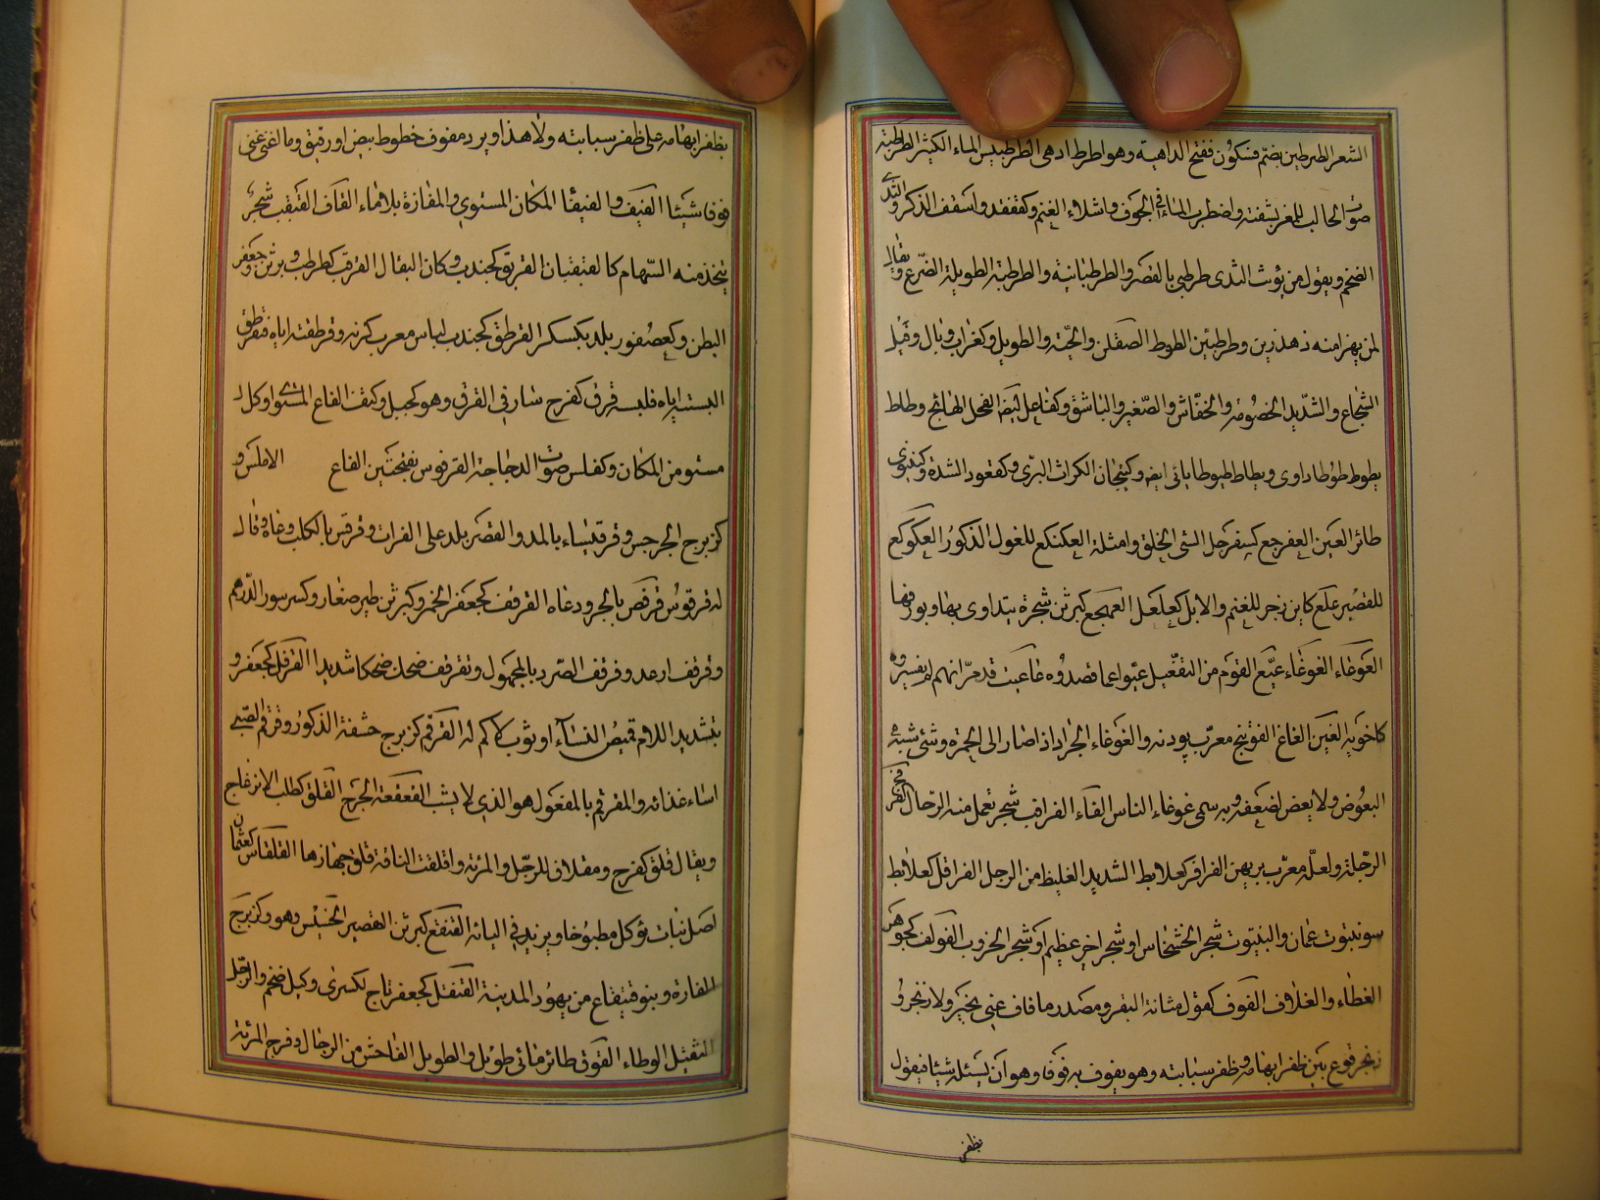 الشعر الطرطبيس بضم فسكون ففتح الداهية وهو اطرط ادهى الطرطبيس الماء الكثير الطرطبة
صوت الحالب للمعز بشفته واضطرب الماء في الجوف واشلاء الغنم وكقنفذ واسقف الذكر والثدى
الضخم ويقول من يؤنث الثدى طرطبى بالقصر والطرطبانية والطرطبة الطويلة الضرع ويقال
لمن يهزا منه ذهدرين وطرطبين الطوط القطن والحية والطويل وكغراب وبال وفيل
الشجاع والشديد الخصومة والخفاش والصغير والباشق وكفاعل ايضا الفحل الهائج وطاط
يطوط طوطا واوى ويطاط طيوطا يائى ايضا وكتيجان الكراث البرى وكقعود الشدة وكنينوى
طائر العين العفرجع كسفرجل السئ الخلق وامثلة العكنكع للغول الذكور العكوكع
للقصير علع كاين زجر للغنم والابل كعلعل العمهجع كبرثن شجرة يتداوى بها وبورقها
العوغاء الغوغاء عيّع القوم من التفعيل عيّوا عما قصدوه عاعيت قد مرّ انهم لم يفسروه
كاخويه الغين الغاغ الفوتنج معرب پودنه والغوغاء الجراد اذا صار الى الحمرة وشئ شبه
البعوض ولا يعض لضعفه وبه سمى غوغاء الناس الفاء الفرافب شجر تعمل منه الرحال الفرفخ
الرجلة ولعله معرب بربهن الفرافر كعلابط الشديد الغليظ من الرجل الفرافل كعلابط
سو ينبوت عمان والينبوت شجر الخشخاش او شجر اخر عظيم او شجر الخروب الفولف كجوهر
الغطاء والغلاف الفوف كقول مثانة البقر ومصدر ما فاف عنى بخير ولا زنجر و
زنجر قوع بين ظفر ابهامه وظفر سبابته وهو يفوف به فوفا وهو ان يسئله شيئا فيقول
بظفر
بظفر ابهامه على ظفر سبابته ولا هذا وبرد مفوف خطوط بيض او رقيق وما اغنى عنى
فوفا شيئا الفيف والفيفا المكان المستوى والمفازة بلا ماء القاف القيقب شجر
يتخذ منه السهام كالقيقبان القربق كجندب دكان البقال القرقب كطرطب وبرثن وجعفر
البطن وكعصفور بلد بكسكر القرطق كجندب لباس معرب كرته وقرطقته اياه فتقرطق
البسته اياه فلبسه قرق كفرح سار في القرق وهو كجبل وكتف القاع المستوى او كل
مستو من المكان وكفلس صوت الدجاجة القرقوس بفتحتين القاع الاملس و
كزبرج الجرجس وقرقيساء بالمد والقصر بلد على الفرات وقرقس بالكلب دعاه وقال
له قرقوس قرقص بالجرو دعاه القرقف كجعفر الخمر وكبرثن طير صغار وكسرسور الدرهم
وقرقف ارعد وقرقف الصرد بالمجهول وتقرقف ضحك ضحكا شديدا القرقل كجعفر و
بتشديد اللام قميص النساء او ثوب لا كم له القرقم كزبرج حشفة الذكور وقرقم الصبى
اساء غذائه والمقرقم بالمفعول هو الذى لا يشب القعقعة الجرح القلق كطلب الانزعاج
ويقال قلق كفرح ومقلاق للرجل والمرئة واقلقت الناقة قلق جهازها القلقاس كعثمان
اصل نبات يؤكل مطبوخا ويزيد في الباءة القنقع كبرثن القصير الخسيس وهو وكزبرج
الفارة وبنو قينقاع من يهود المدينة القنقل كجعفر تاج لكسرى وكيل ضخم والرجل
الثقيل الوطاء القوق طائر مائى طويل والطويل الفاحش من الرجال وفرج المرئة